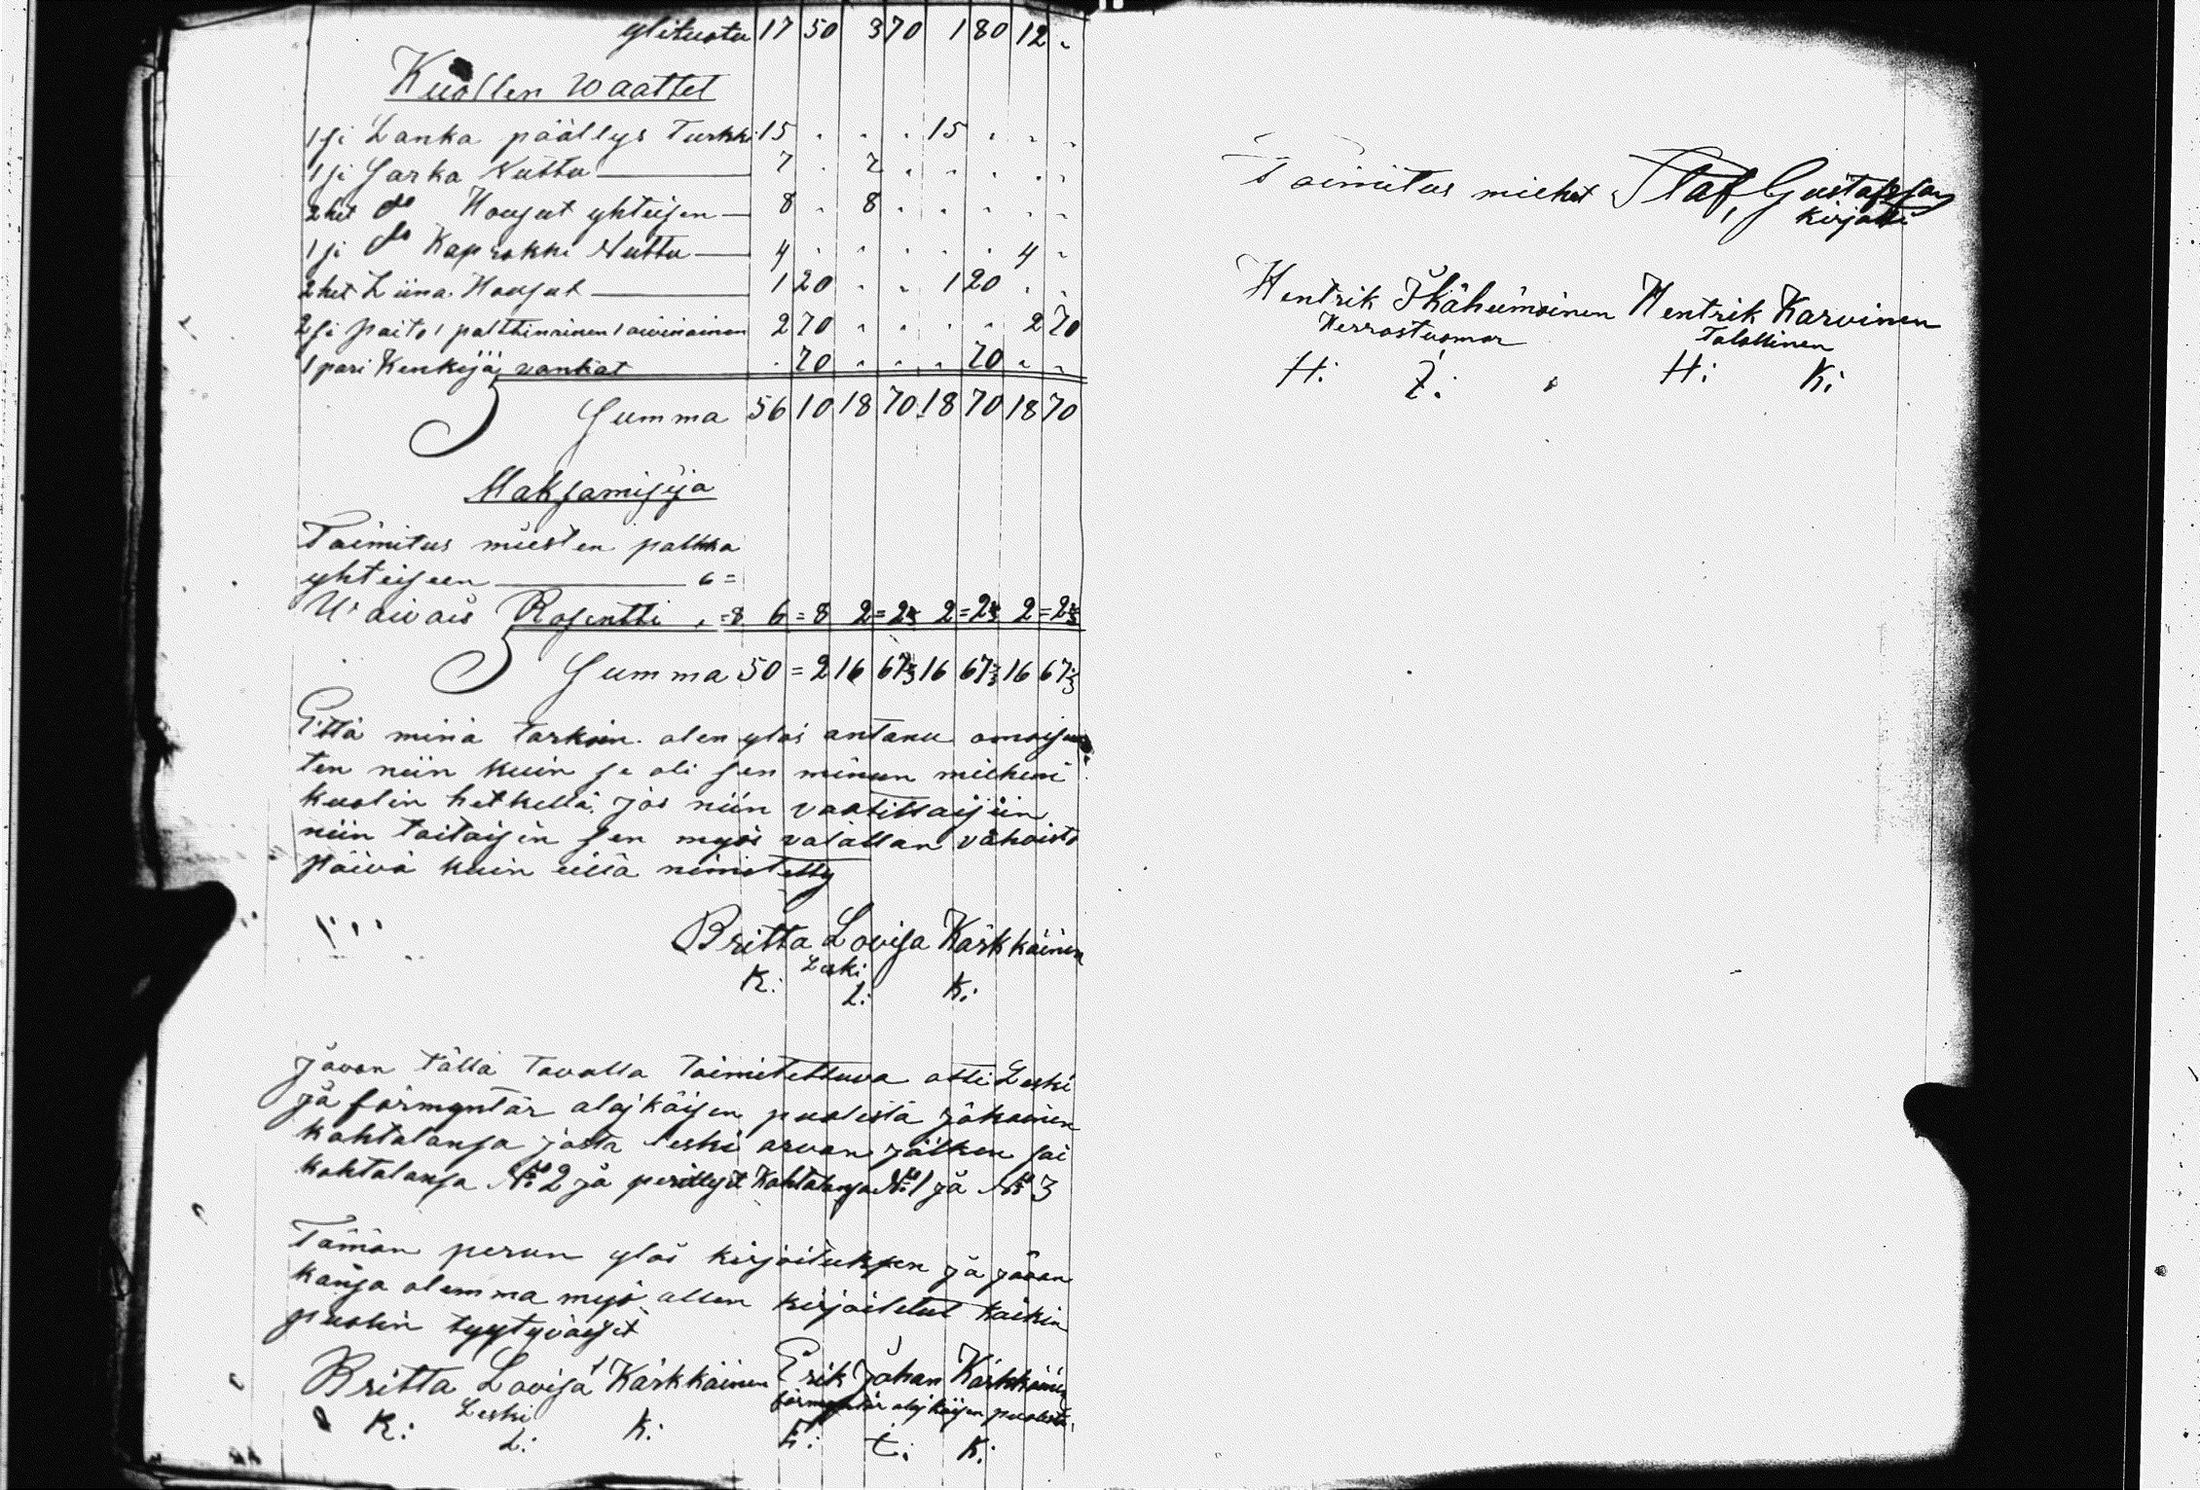 ylituotu 17 50 3 70 1 80 12 "
Kuollen waattet
1 si Lanka päällys Turkki 15 . . . 15 . . .
1 si Sarka Nuttu 7 . 7 . . . . .
2 het do Housut yhteisen 8 . 8 . . . . .
1 si do Kaprokki Nuttu 4 . . . . . 4 .
2 het Liina Housut 1 20 . . 1 20 . .
2 si paito 1 palttinainen 1 aivinainen 2 70 . . . . 2 70
1 pari Kenkijä vanhat . 70 . . . 70 . .
Summa 56 10 18 70 18 70 18 70
Maksamisija
Toimitus miesten palkka
yhteiseen 6 =
U: aivais Rosentti . =8 6 = 8 2 = 2⅔ 2 = 2⅔ 2 = 2⅔
Summa 50 = 2 16 67⅓ 16 67⅓ 16 67⅓
Että minä tarkin olen ylös antanu omaisuu
ten niin kuin se oli sen minun mieheni
kuolin hetkellä, jos niin vaatittaisiin
niin taitaisin sen myös valallan vahvista
Päivä kuin eillä nimitetty
Britta Lovisa Kärkkäinen
Leski
K: L: K:
Jaon tällä tavalla toimitettuva otti Leski
ja förmyntär alaikäisen puolesta jokainen
kohtalansa josta Leski arvan jälken sai
kohtalansa No 2 ja perillyt Kohtalansa No 1 ja No 3
Tämän perun ylös kirjoituksen ja jaon
kansa olemma myö allen kirjoitetut kaikin
puolin tyytyväisit
Britta Lovisa Kärkkäinen Erik Johan Kärkkäinen
Leski förmyntär alaikäisen puolesta
K: L: K: E: J: K:
Toimitus miehet Staf, Gustafsson
kirjotti
Hentrik Ikäheimoinen Hentrik Karvinen
Herrastuomar Talollinen
H: I: H: K: